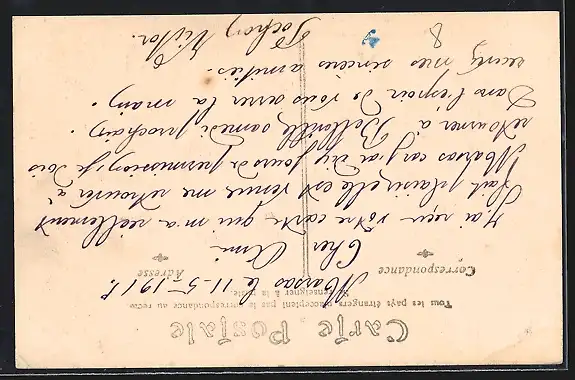 Carte Postale
Tous les pays étrangers n'acceptent pas la correspondance au recto
Se renseigner à la poste
Correspondance
Adresse
Marsas le 11-5-191
Cher Ami
J'ai reçu votre carte qui m'a reellement
fait plaisir elle est venue me retrouver à
Marsas car j'ai dix jours de permission, je dois
retourner à samedi prochain.
Dans l'espoir de vous serrer la main,
recevez mes sincères amitiés.
Victor.
8